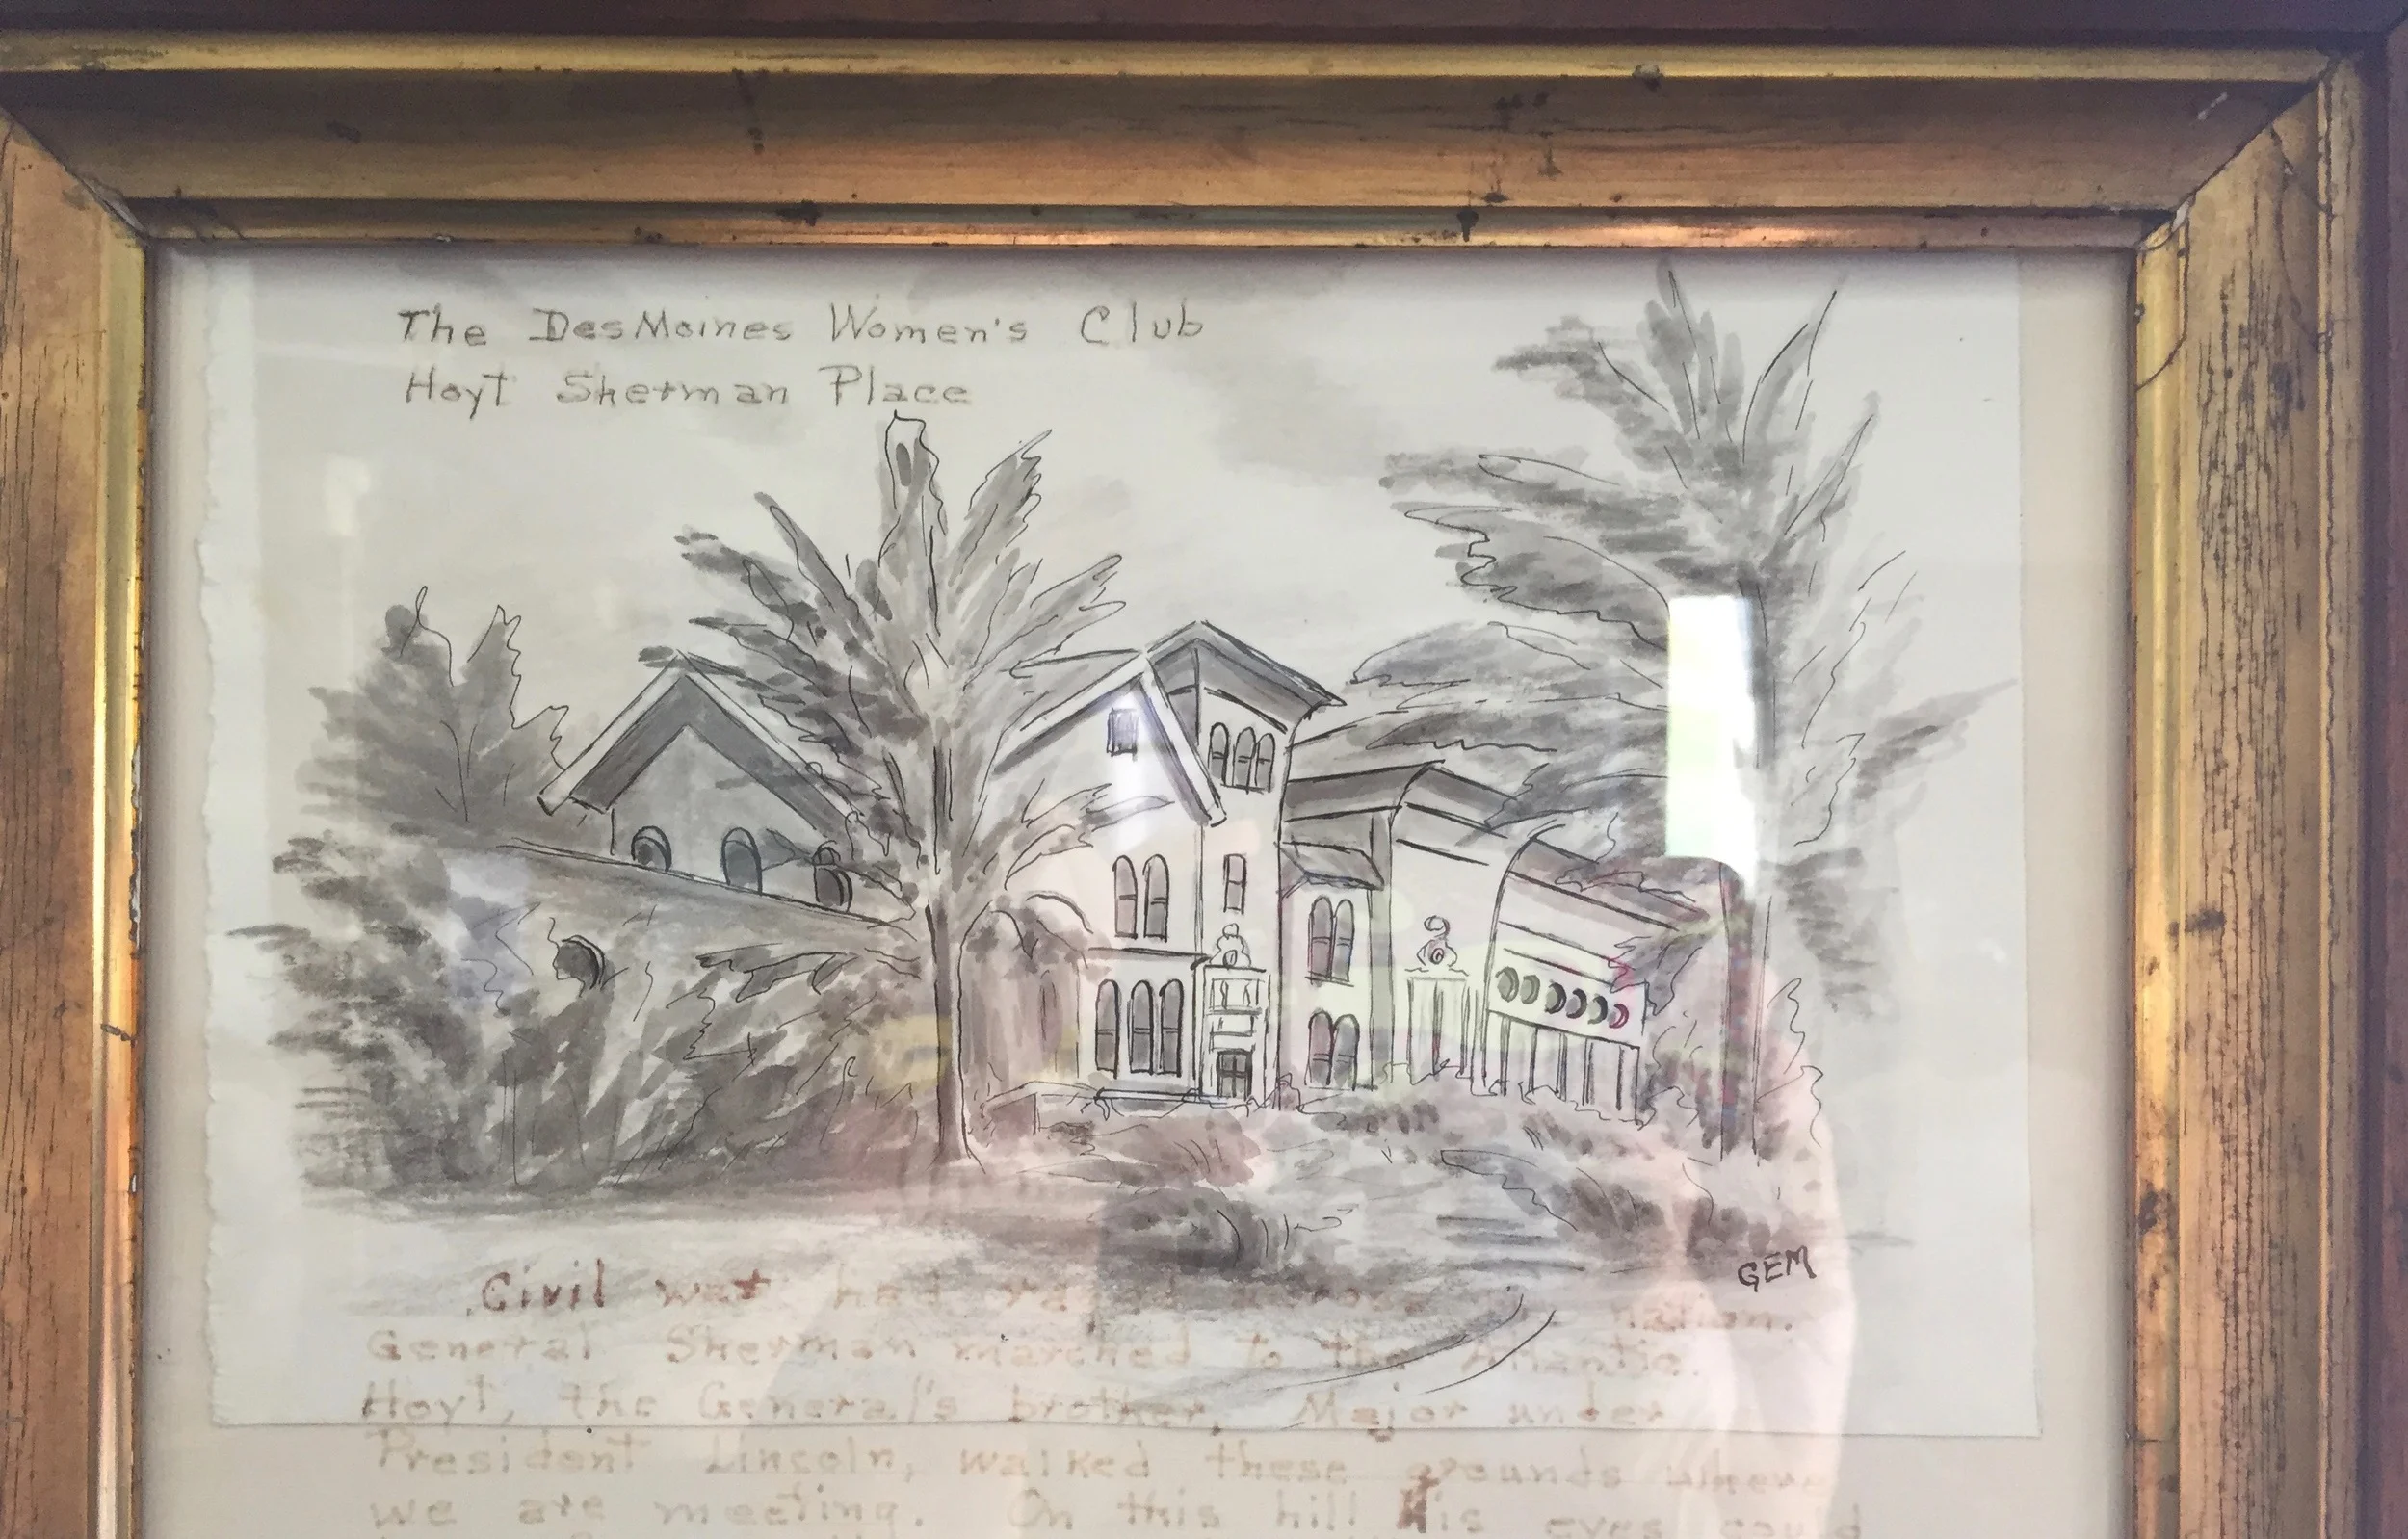 The DesMoines Women's Club
Hoyt Sherman Place
GEM
Civil war had raged across nation.
General Sherman marched to the Atlantic.
Hoyt, the General's brother, Major under
President Lincoln, walked these grounds where
we are meeting. On this hill his eyes could